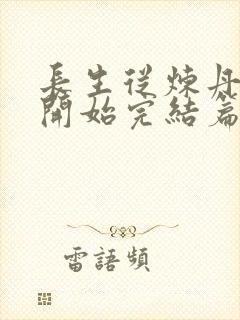 長生從煉丹
開始完結篇
雷語頻